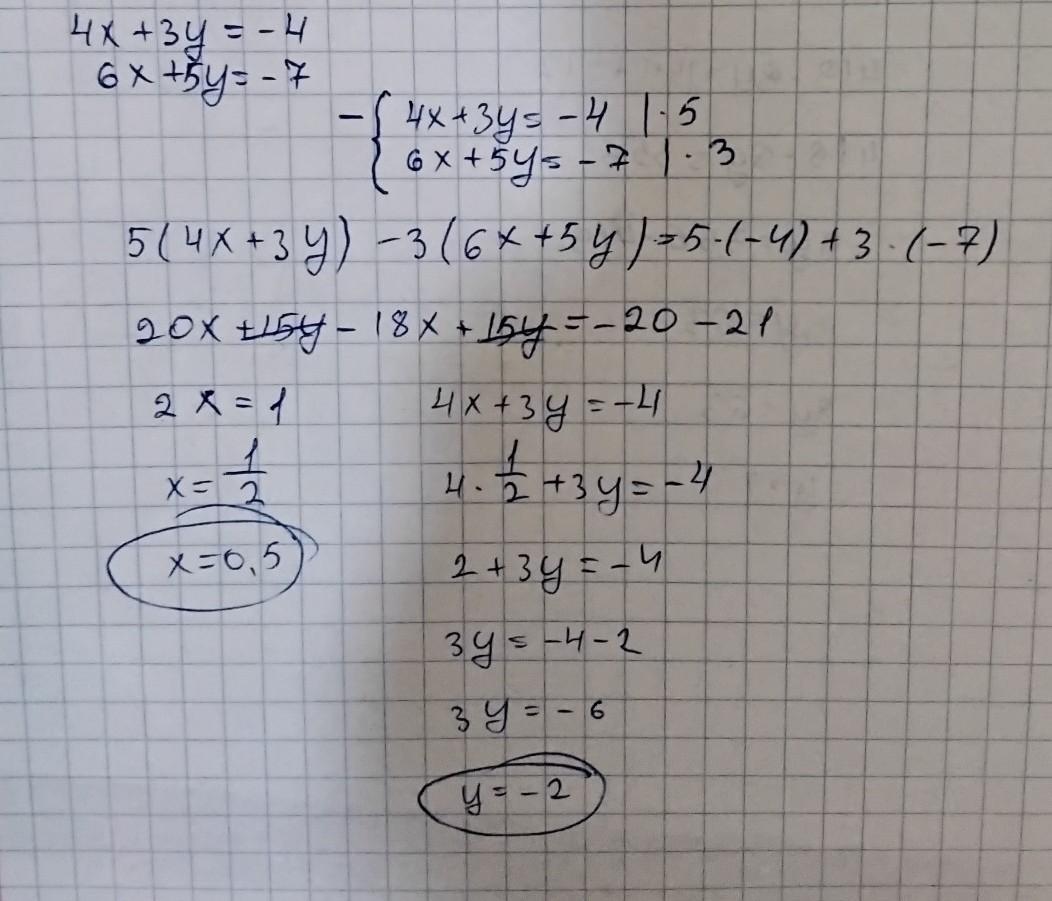 4x + 3y = -4
6x + 5y = -7
-{ 4x + 3y = -4 | · 5
6x + 5y = -7 | · 3
5(4x + 3y) - 3(6x + 5y) = 5·(-4) + 3·(-7)
20x + 15y - 18x + 15y = -20 - 21
2x = 1
x = 1/2
x = 0,5
4x + 3y = -4
4 · 1/2 + 3y = -4
2 + 3y = -4
3y = -4 - 2
3y = -6
y = -2